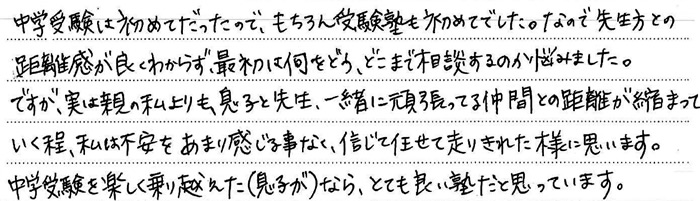 中学受験は初めてだったので、もちろん受験塾も初めてでした。なので先生方との
距離感が良くわからず、最初は何をどう、どこまで相談するのか悩みました。
ですが、実は親の私よりも、息子と先生、一緒に頑張ってる仲間との距離が縮まって
いく程、私は不安をあまり感じる事なく、信じて任せて走りきれた様に思います。
中学受験を楽しく乗り越えた(息子が)なら、とても良い塾だと思っています。